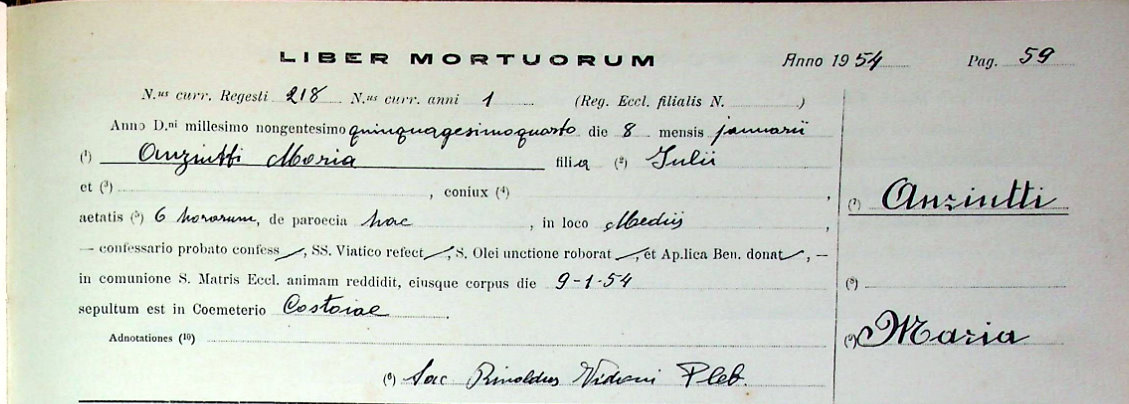 LIBER MORTUORUM Anno 1954 Pag. 59
N.us curr. Regesti 218 N.us curr. anni 1 (Reg. Eccl. filialis N. )
Anno D.ni millesimo nongentesimo quinquagesimoquarto die 8 mensis januarii
(1) Anziutti Maria filia (2) Julii
et (3) , coniux (4) ,
aetatis (5) 6 horarum, de paroecia hac , in loco Mediis ,
— confessario probato confess , SS. Viatico refect , S. Olei unctione roborat , et Ap.lica Ben. donat , —
in comunione S. Matris Eccl. animam reddidit, eiusque corpus die 9-1-54
sepultum est in Coemeterio Costoiae
Adnotationes (10)
(6) Sac Rinoldus Pleb.
(7) Anziutti
(8)
(9) Maria